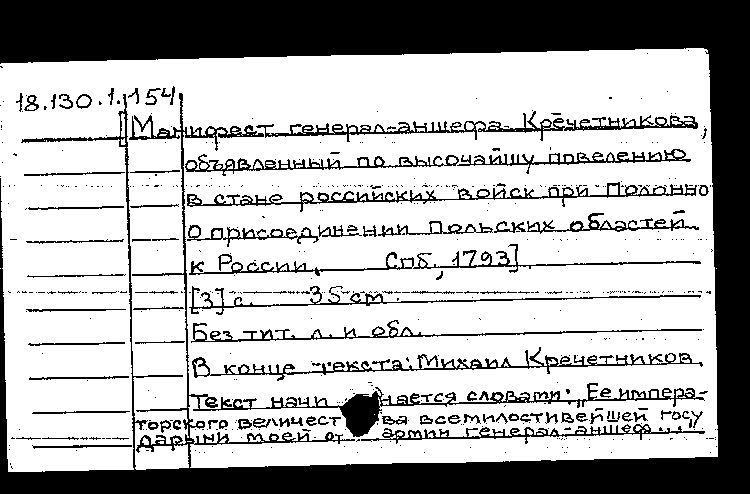 18.130.1.154
[Манифест генерал-аншефа Кречетникова,
объявленный по высочайшу повелению
в стане российских войск при Полонно
о присоединении польских областей
к России. Спб., 1793]
[3] с. 35 cm.
Без тит. л. и обл.
В конце текста: Михаил Кречетников.
Текст начинается словами: „Ее импера-
торского величества всемилостивейшей госу
дарыни моей от армии генерал-аншеф..."